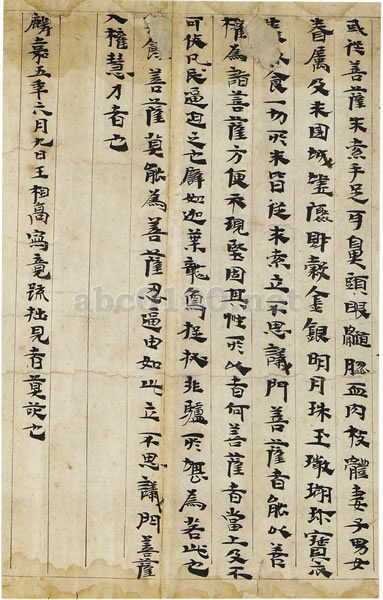 或從菩薩求索手足耳鼻頭眼髓腦血肉肌體妻子男女
眷屬及求國城財穀金銀明月珠玉珊瑚珍寶衣
食一切所求皆從求索立不思議門菩薩者能以善
權為諸菩薩方便示現堅固其性所以者何菩薩者當上及不
可使凡民逼迫之也譬如迦葉龍象蹴踏非驢所堪為若此也
菩薩莫能為菩薩忍逼由如此立不思議門菩薩
入權慧力者也
麟嘉五年六月九日王相高寫竟疏拙見者莫笑也